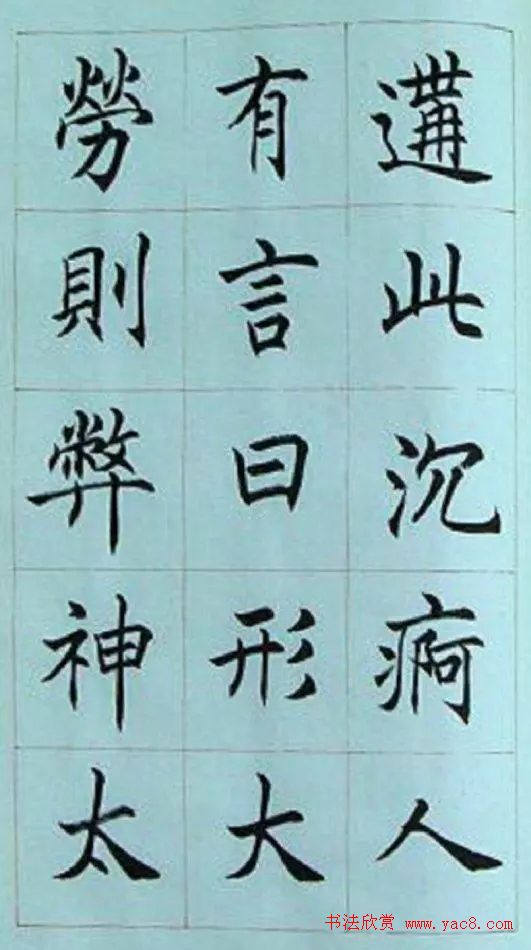 遘此沉痾人
有言曰形大
勞則弊神太
书法欣赏 www.yac8.com